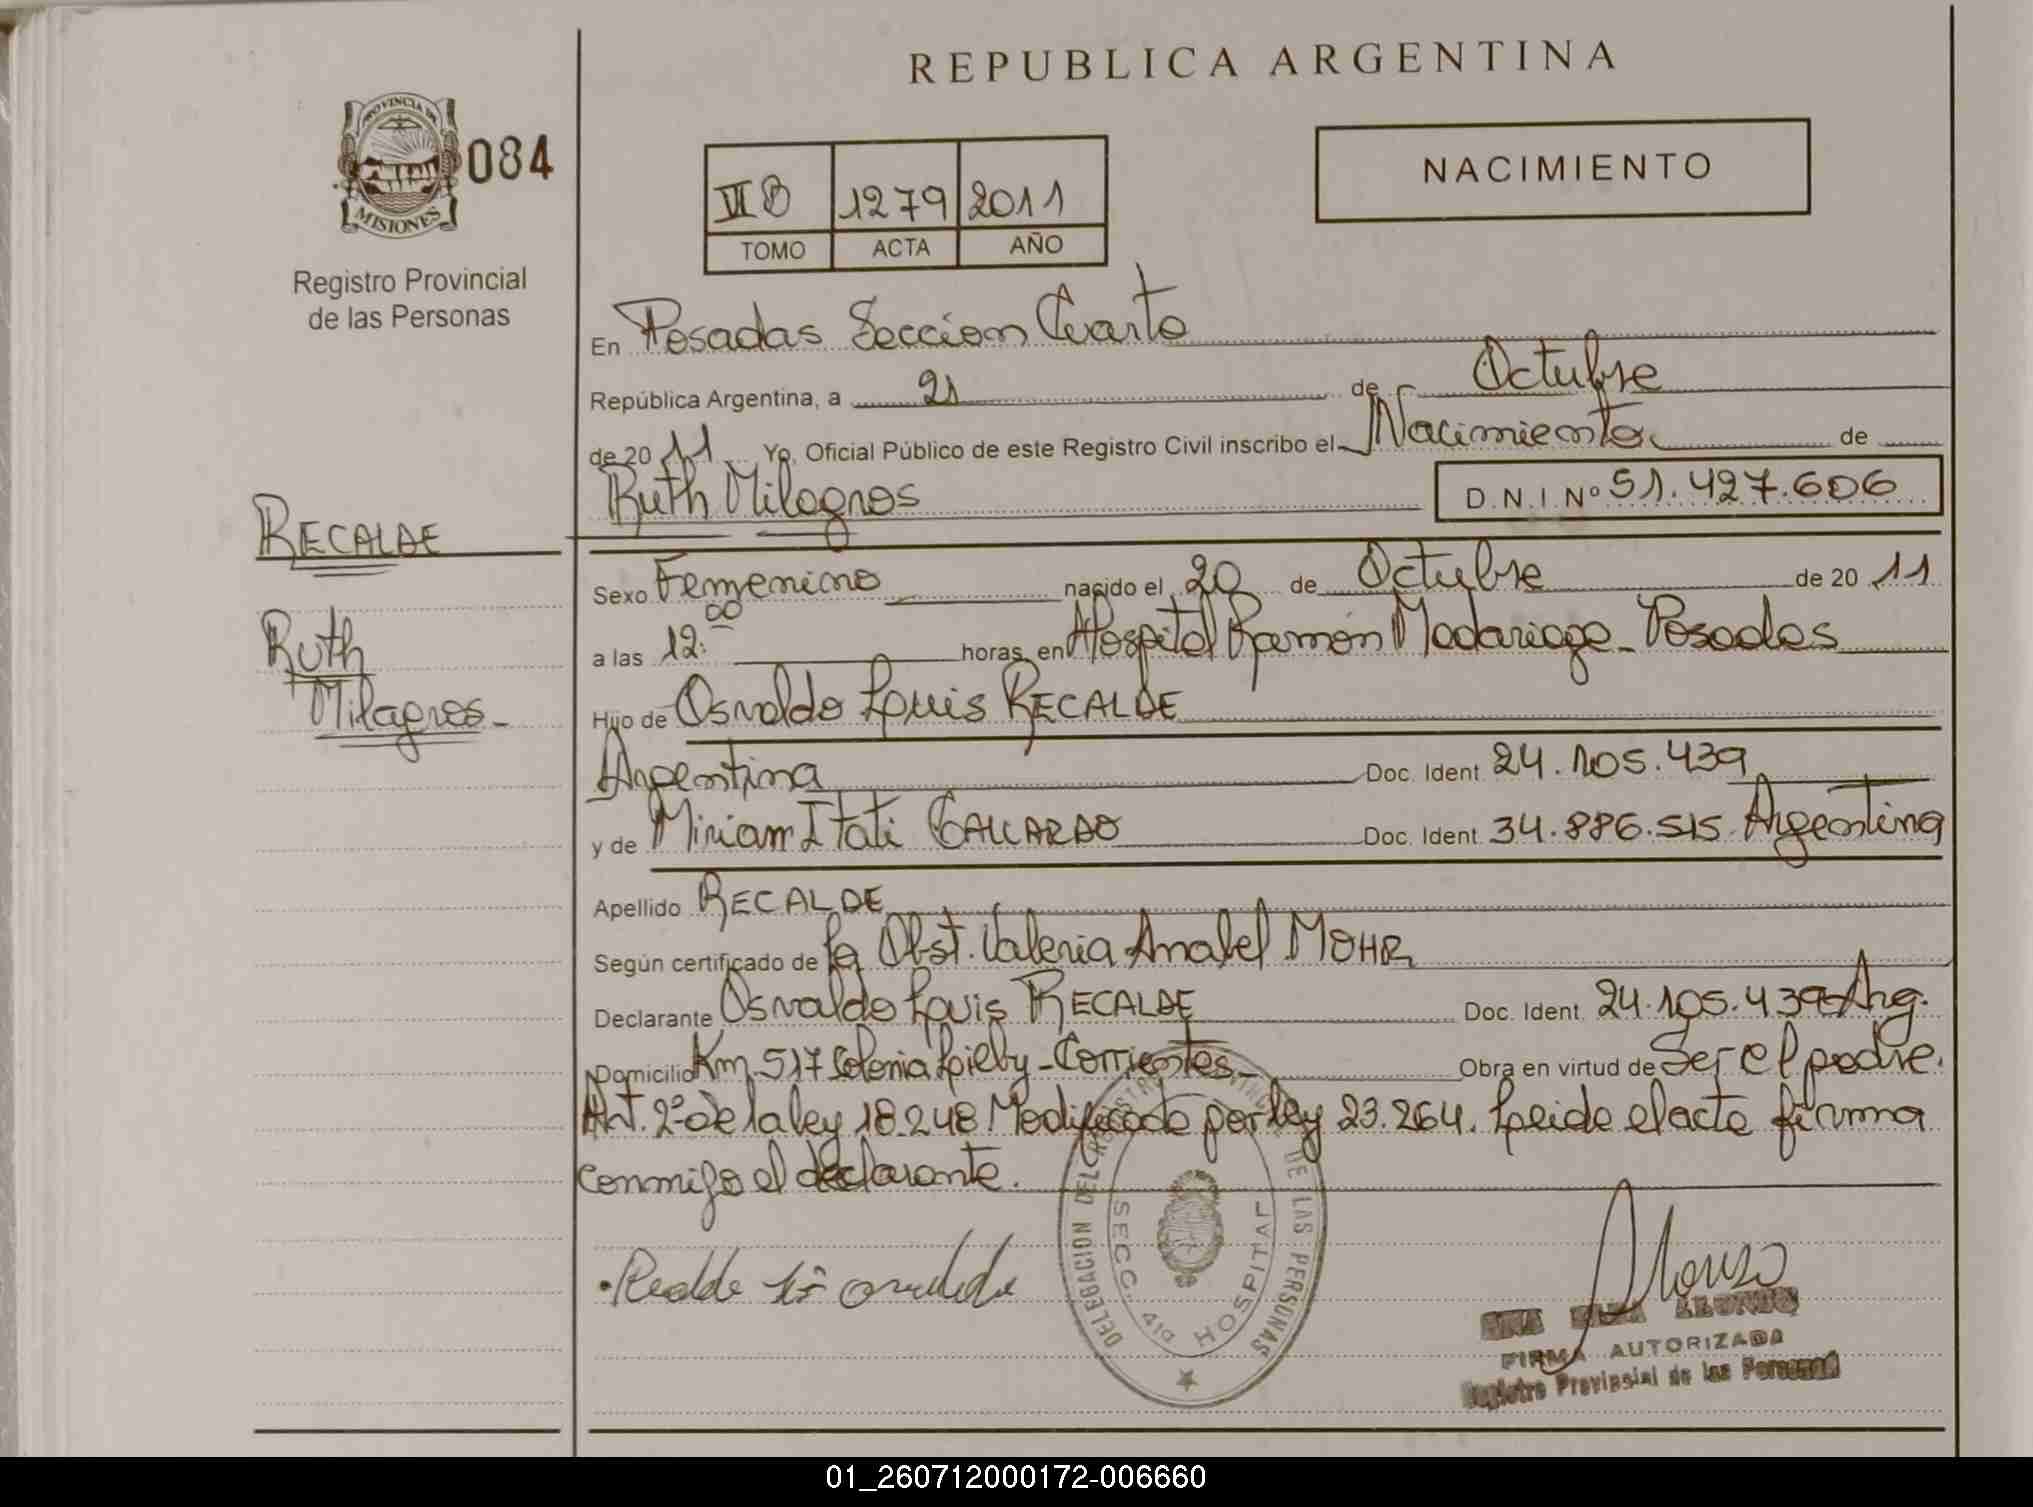 REPUBLICA ARGENTINA
PROVINCIA DE
MISIONES
084
Registro Provincial
de las Personas
VI B 1279 2011
TOMO ACTA AÑO
NACIMIENTO
En Posadas Seccion Cuarta
República Argentina, a 21 de Octubre
de 20 11 Yo, Oficial Público de este Registro Civil inscribo el Nacimiento de
Ruth Milagros D.N.I Nº 51.427.606
RECALDE
Ruth
Milagros
Sexo Femenino nacido el 20 de Octubre de 20 11
a las 12:00 horas, en Hospital Ramón Madariaga - Posadas
Hijo de Osvaldo Luis RECALDE
Argentina Doc. Ident 24.105.439
y de Miriam Itati GALLARDO Doc. Ident. 34.886.515 Argentina
Apellido RECALDE
Según certificado de la Obst. Valeria Anabel MOHR
Declarante Osvaldo Luis RECALDE Doc. Ident. 24.105.439 Arg.
Domicilio Km. 517 Colonia Liebig - Corrientes - Obra en virtud de Ser el padre.
Art. 2º de la ley 18.248 Modificado por ley 23.264. Leida el acta firma
conmigo el declarante.
Recalde
DELEGACION DEL REGISTRO DE LAS PERSONAS
SECC. 4ta HOSPITAL
Alonso
ALONSO
FIRMA AUTORIZADA
Registro Provincial de las Personas
01_260712000172-006660